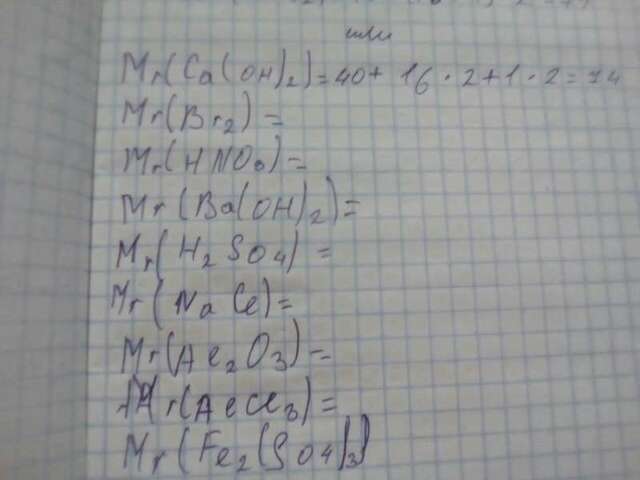 или
Mr(Ca(OH)₂)=40+16·2+1·2=74
Mr(Br₂)=
Mr(HNO₃)=
Mr(Ba(OH)₂)=
Mr(H₂SO₄)=
Mr(NaCl)=
Mr(Al₂O₃)=
Mr(AlCl₃)=
Mr(Fe₂(SO₄)₃)